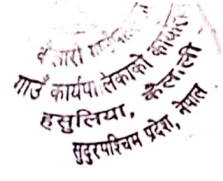 गाउँ कार्यपालिकाको कार्यालय
हसुलिया, कैलाली
सुदुरपश्चिम प्रदेश, नेपाल